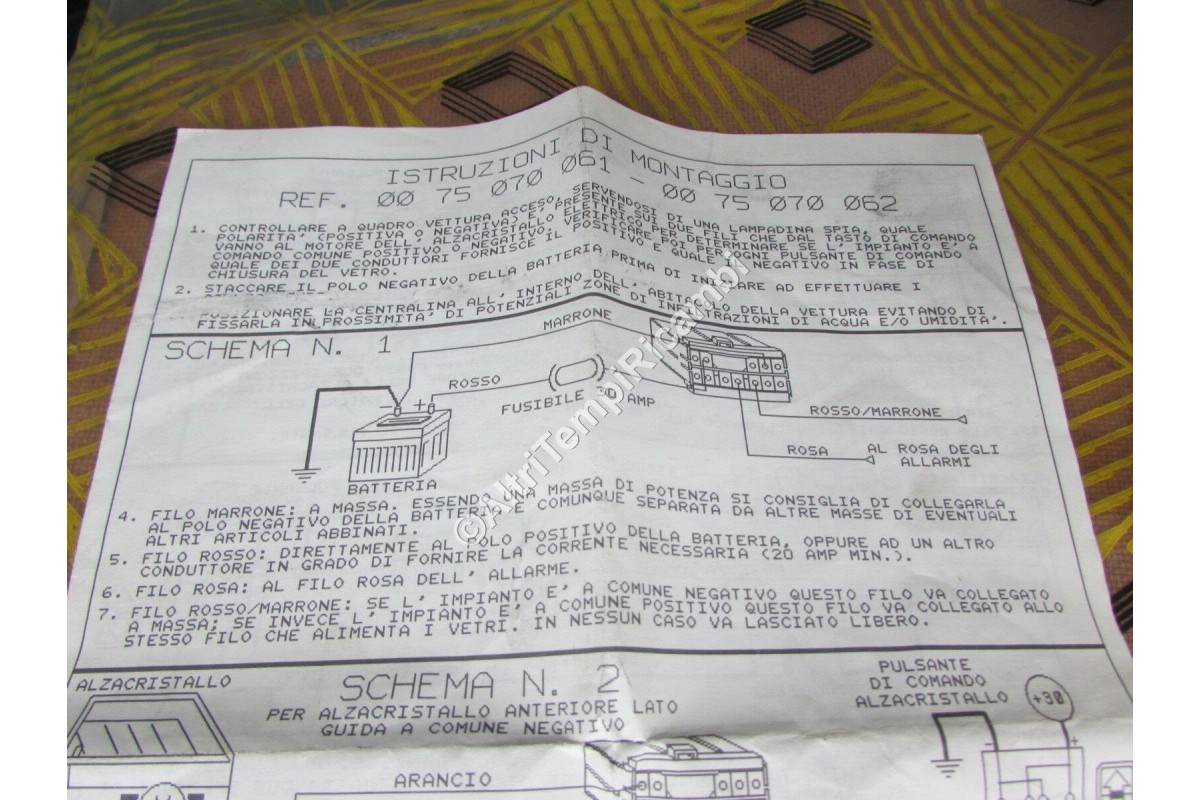 ISTRUZIONI DI MONTAGGIO
REF. 00 75 070 061 - 00 75 070 062
1. CONTROLLARE A QUADRO VETTURA ACCESO, SERVENDOSI DI UNA LAMPADINA SPIA, QUALE
POLARITA' (POSITIVA O NEGATIVA) E' PRESENTE SUI DUE FILI CHE DAL TASTO DI COMANDO
VANNO AL MOTORE DELL' ALZACRISTALLO ELETTRICO PER DETERMINARE SE L' IMPIANTO E' A
COMANDO COMUNE POSITIVO O NEGATIVO. VERIFICARE POI PER OGNI PULSANTE DI COMANDO
QUALE DEI DUE CONDUTTORI FORNISCE IL POSITIVO E QUALE IL NEGATIVO IN FASE DI
CHIUSURA DEL VETRO.
2. STACCARE IL POLO NEGATIVO DELLA BATTERIA PRIMA DI INIZIARE AD EFFETTUARE I
POSIZIONARE LA CENTRALINA ALL' INTERNO DELL' ABITACOLO DELLA VETTURA EVITANDO DI
FISSARLA IN PROSSIMITA' DI POTENZIALI ZONE DI INFILTRAZIONI DI ACQUA E/O UMIDITA'.
SCHEMA N. 1
MARRONE
ROSSO
FUSIBILE AMP
- +
BATTERIA
ROSSO/MARRONE
ROSA
AL ROSA DEGLI
ALLARMI
4. FILO MARRONE: A MASSA. ESSENDO UNA MASSA DI POTENZA SI CONSIGLIA DI COLLEGARLA
AL POLO NEGATIVO DELLA BATTERIA E COMUNQUE SEPARATA DA ALTRE MASSE DI EVENTUALI
ALTRI ARTICOLI ABBINATI.
5. FILO ROSSO: DIRETTAMENTE AL POLO POSITIVO DELLA BATTERIA, OPPURE AD UN ALTRO
CONDUTTORE IN GRADO DI FORNIRE LA CORRENTE NECESSARIA (20 AMP MIN.).
6. FILO ROSA: AL FILO ROSA DELL' ALLARME.
7. FILO ROSSO/MARRONE: SE L' IMPIANTO E' A COMUNE NEGATIVO QUESTO FILO VA COLLEGATO
A MASSA; SE INVECE L' IMPIANTO E' A COMUNE POSITIVO QUESTO FILO VA COLLEGATO ALLO
STESSO FILO CHE ALIMENTA I VETRI. IN NESSUN CASO VA LASCIATO LIBERO.
ALZACRISTALLO
SCHEMA N. 2
PER ALZACRISTALLO ANTERIORE LATO
GUIDA A COMUNE NEGATIVO
PULSANTE
DI COMANDO
ALZACRISTALLO
+30
- +
ARANCIO
©AltriTempiRicambi